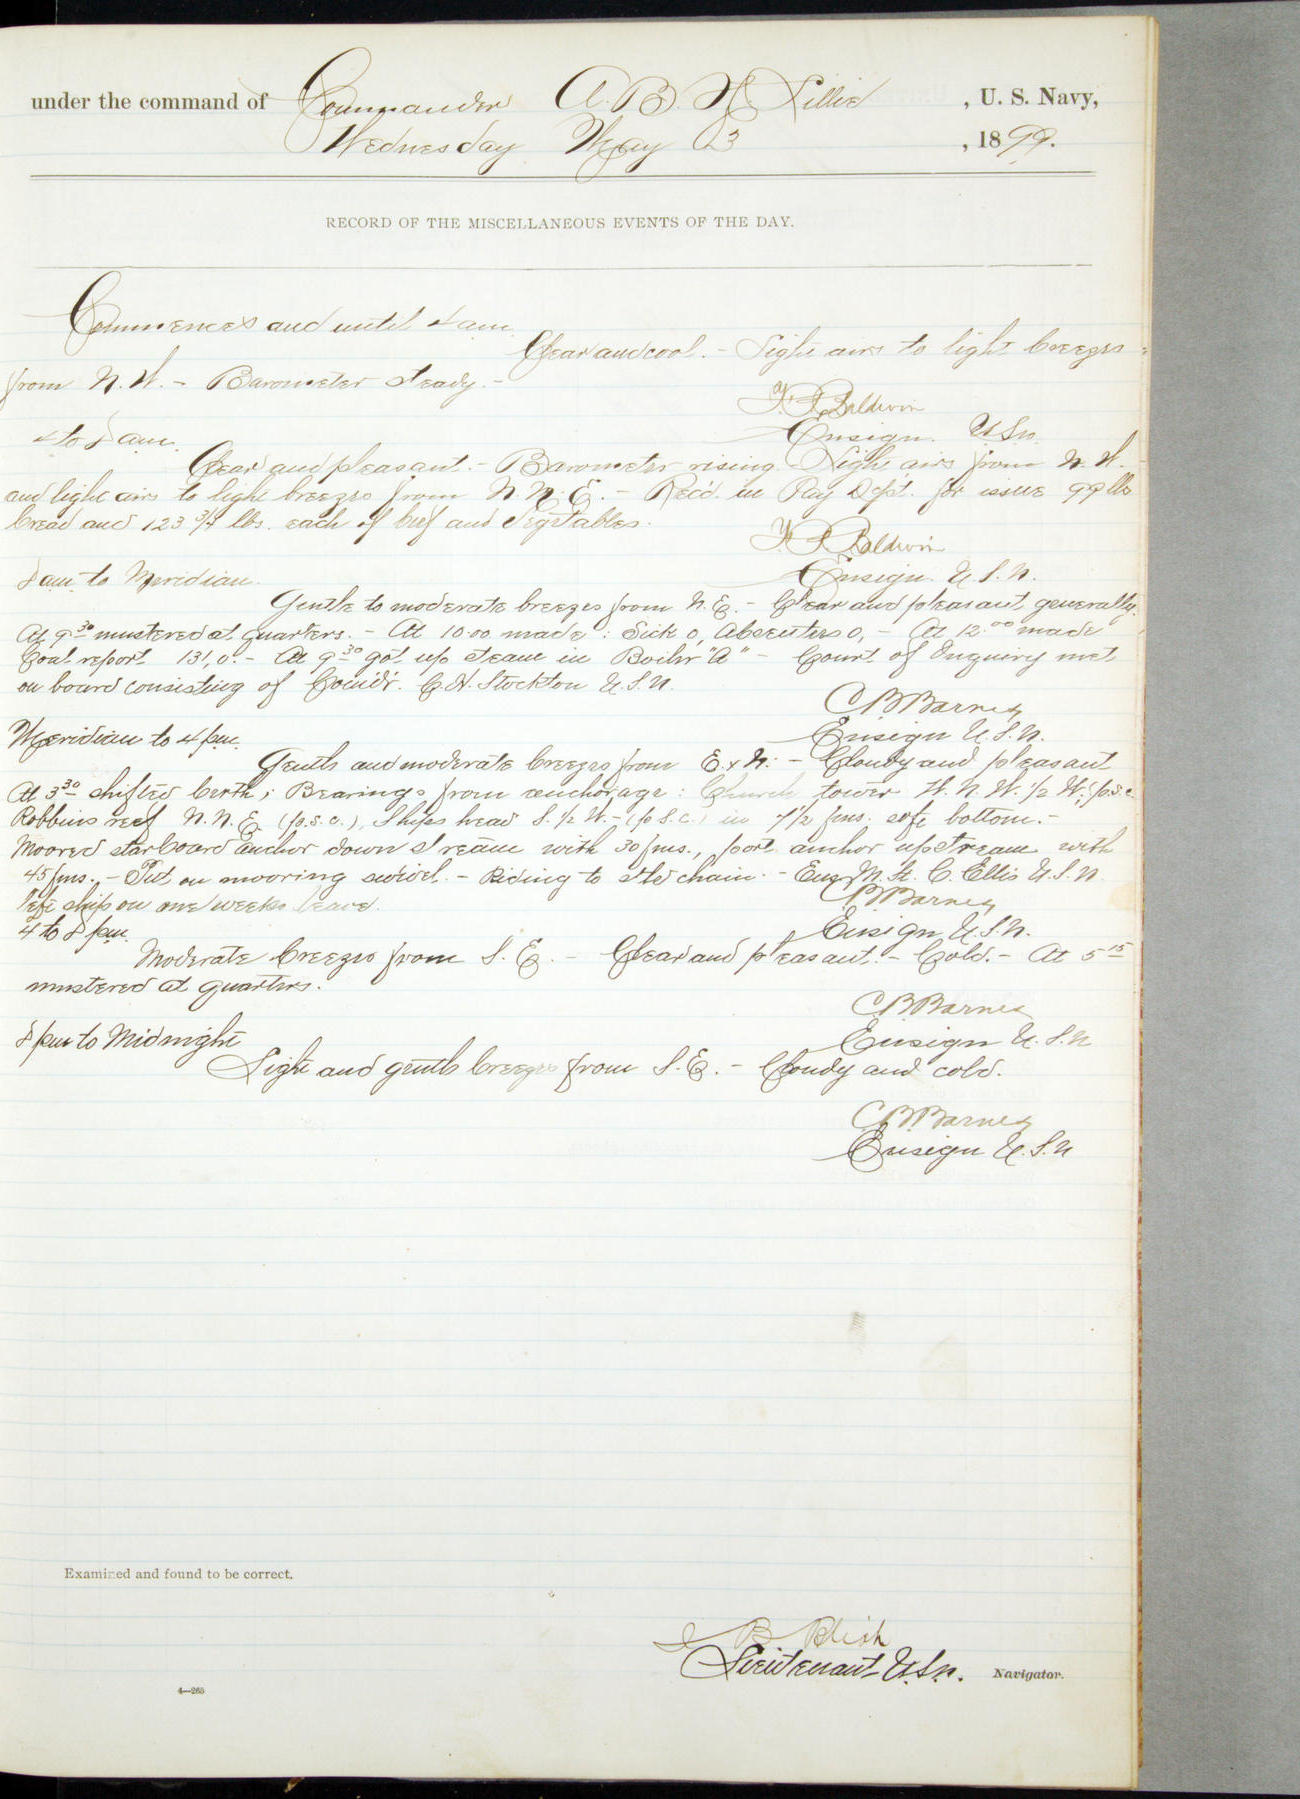 under the command of Commander A. B. H. Lillie, U. S. Navy,
Wednesday May 3, 1899.
RECORD OF THE MISCELLANEOUS EVENTS OF THE DAY.
Commences and until 4 am.
Clear and cool. - Light airs to light breezes
from N.W. - Barometer steady. -
Baldwin
Ensign. U.S.N.
4 to 8 am.
Clear and pleasant. - Barometer rising. Light airs from N.W.
and light airs to light breezes from N.N.E. - Rec'd. in Pay Dep't. for issue 99 lbs
bread and 123 3/4 lbs. each of beef and vegetables.
Baldwin
Ensign. U.S.N.
8 am. to Meridian.
Gentle to moderate breezes from N.E. - Clear and pleasant generally.
At 9 30 mustered at quarters. - At 10.00 made: Sick 0, Absentees 0, - At 12.00 made
Coal report 131,0. - At 9 30 got up steam in Boiler "A" - Court of Inquiry met
on board consisting of Comd'r. C.H. Stockton U.S.N.
C B Barnes
Ensign U.S.N.
Meridian to 4 pm.
Gentle and moderate breezes from E. x N. - Cloudy and pleasant
At 3 30 shifted berth; Bearings from anchorage: Church tower W.N.W. 1/2 W; (p.s.c.
Robbins reef N.N.E. (p.s.c.), Ships head S. 1/2 W. - (p.s.c.) in 7 1/2 fms. soft bottom. -
Moored starboard anchor down stream with 30 fms., port anchor upstream with
45 fms. - Put on mooring swivel. - Riding to stbd chain. - Ens. M. St. C. Ellis U.S.N.
left ship on one weeks leave.
C B Barnes
Ensign U.S.N.
4 to 8 pm.
Moderate breezes from S.E. - Clear and pleasant. - Cold. - At 5 15
mustered at quarters.
C B Barnes
Ensign U.S.N
8 pm to Midnight
Light and gentle breezes from S.E. - Cloudy and cold.
C B Barnes
Ensign U.S.N
Examined and found to be correct.
J B Blish
Lieutenant U.S.N. Navigator.
4—265